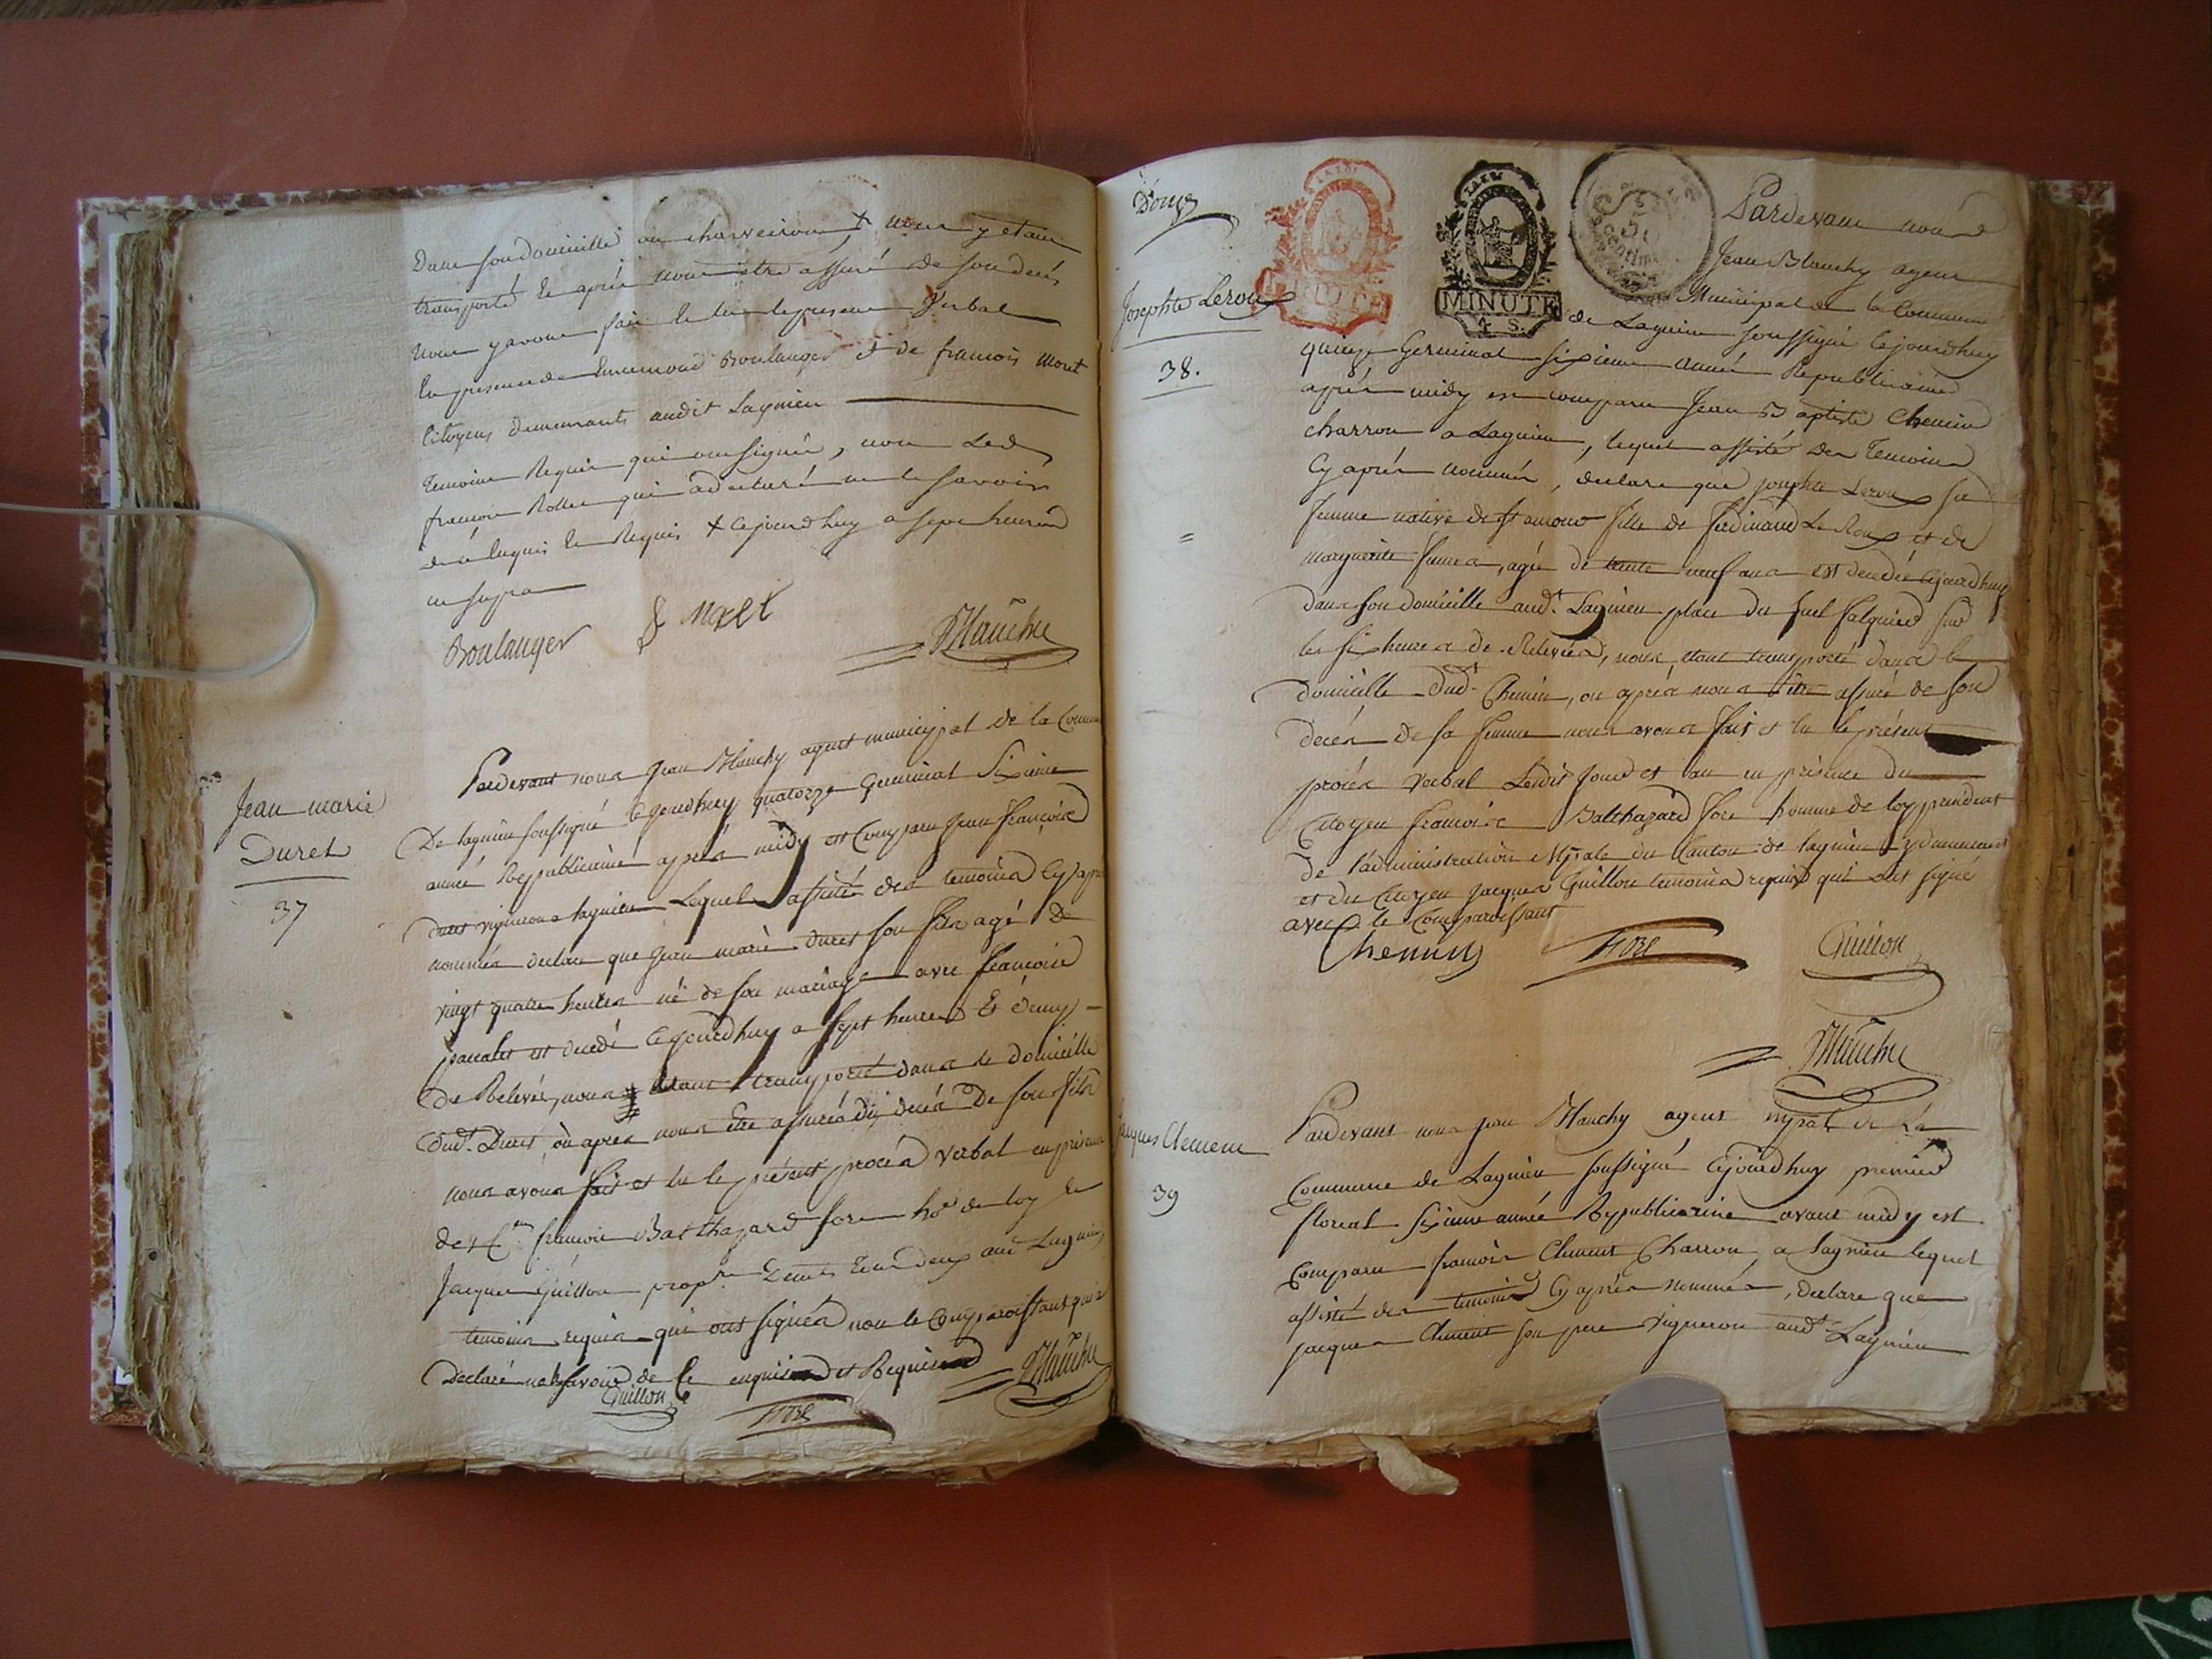 Dans son domicille au charveiron, + nous y etant
transporté et après nous être assuré de son decés
nous y avons fait et lu le present Verbal
en presence de Boulanger et de francois Moret
Citoyens demeurants audit Lagnieu
temoins Requis qui ont signés, non Led.
francois Rollet qui a declaré ne le savoir
de ce Enquis et Requis + cejourdhuy a sept heures
ut supra
Boulanger f Moret Blauchy
Jean marie
Duret
37
Pardevant nous Jean Blauchy agent municipal de la Commune
De lagnieu soussigné cejourdhuy quatorze Germinal Sixieme
année Républicaine après midy est Comparu Jean françois
duret vigneron a lagnieu Lequel assisté des temoins Cy après
nommés declare que Jean marie duret son fils agé de
vingt quatre heures né de son mariage avec francoise
est decedé Cejourdhuy a sept heures Et demy
de Relevée, nous étant transporté dans le domicille
dud. Duret, où après nous être assurés du decés De son fils
nous avons fait et lu le présent procés verbal en présence
des C.en francois Balthazard fore ho.e de loy et
Jacques Guillon prop.re Demts tous deux aud Lagnieu,
temoins requis qui ont signés non le Comparoissant qui a
Declaré ne le savoir de Ce enquis et Requis Blauchy
Guillon fore
Douze
MINUTE
4 S.
50
centimes
Josephte Leroux
38.
Pardevant nous
Jean Blauchy agent
Municipal de la Commune
de Lagnieu soussigné Cejourdhuy
quinze Germinal sixieme année Republicaine
après midy est comparu Jean Baptiste Chemin
charron a Lagnieu, lequel assisté des Temoins
Cy après nommés, declare que josephte Leroux sa
femme native de St amour fille de ferdinand Le Roux et de
marguerite, agée de trente neuf ans est decedée Cejourdhuy
dans son domicille aud.t Lagnieu place du sur
les six heures de Relevées, nous étant transporté dans le
domicille dud.t Chemin, ou après nous être assuré de son
decés de sa femme nous avons fait et lu le présent
procés verbal Lesdit jour et an en présence du
Citoyen francois Balthazard fore homme de loy president
de l'administration mpale du Canton de lagnieu y demeurant
et du Citoyen jacques Guillon temoins requis qui ont signé
avec le Comparoissant
Chemin fore Guillon
Blauchy
jacques Clement
39
Pardevant nous jean Blauchy agent mpal de La
Commune de Lagnieu soussigné Cejourdhuy premier
floreal sixieme année Republicaine avant midy est
Comparu francois Clement Charron a lagnieu lequel
assisté des temoins Cy après nommés, declare que
jacques Clement son pere vigneron aud.t Lagnieu